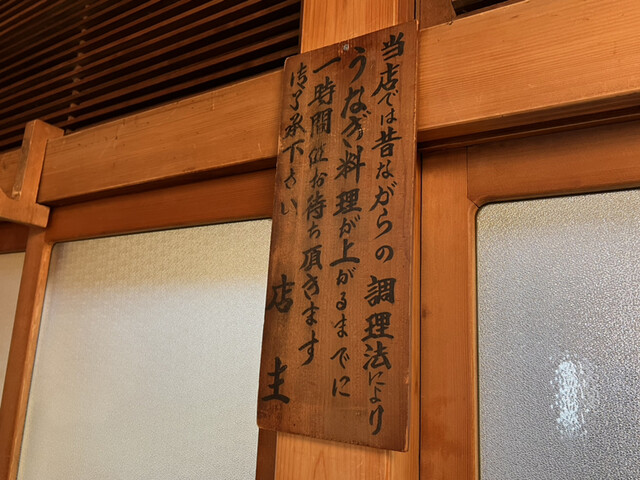 当店では昔ながらの調理法により
うなぎ料理が上がるまでに
一時間位お待ち頂きます
御了承下さい
店主